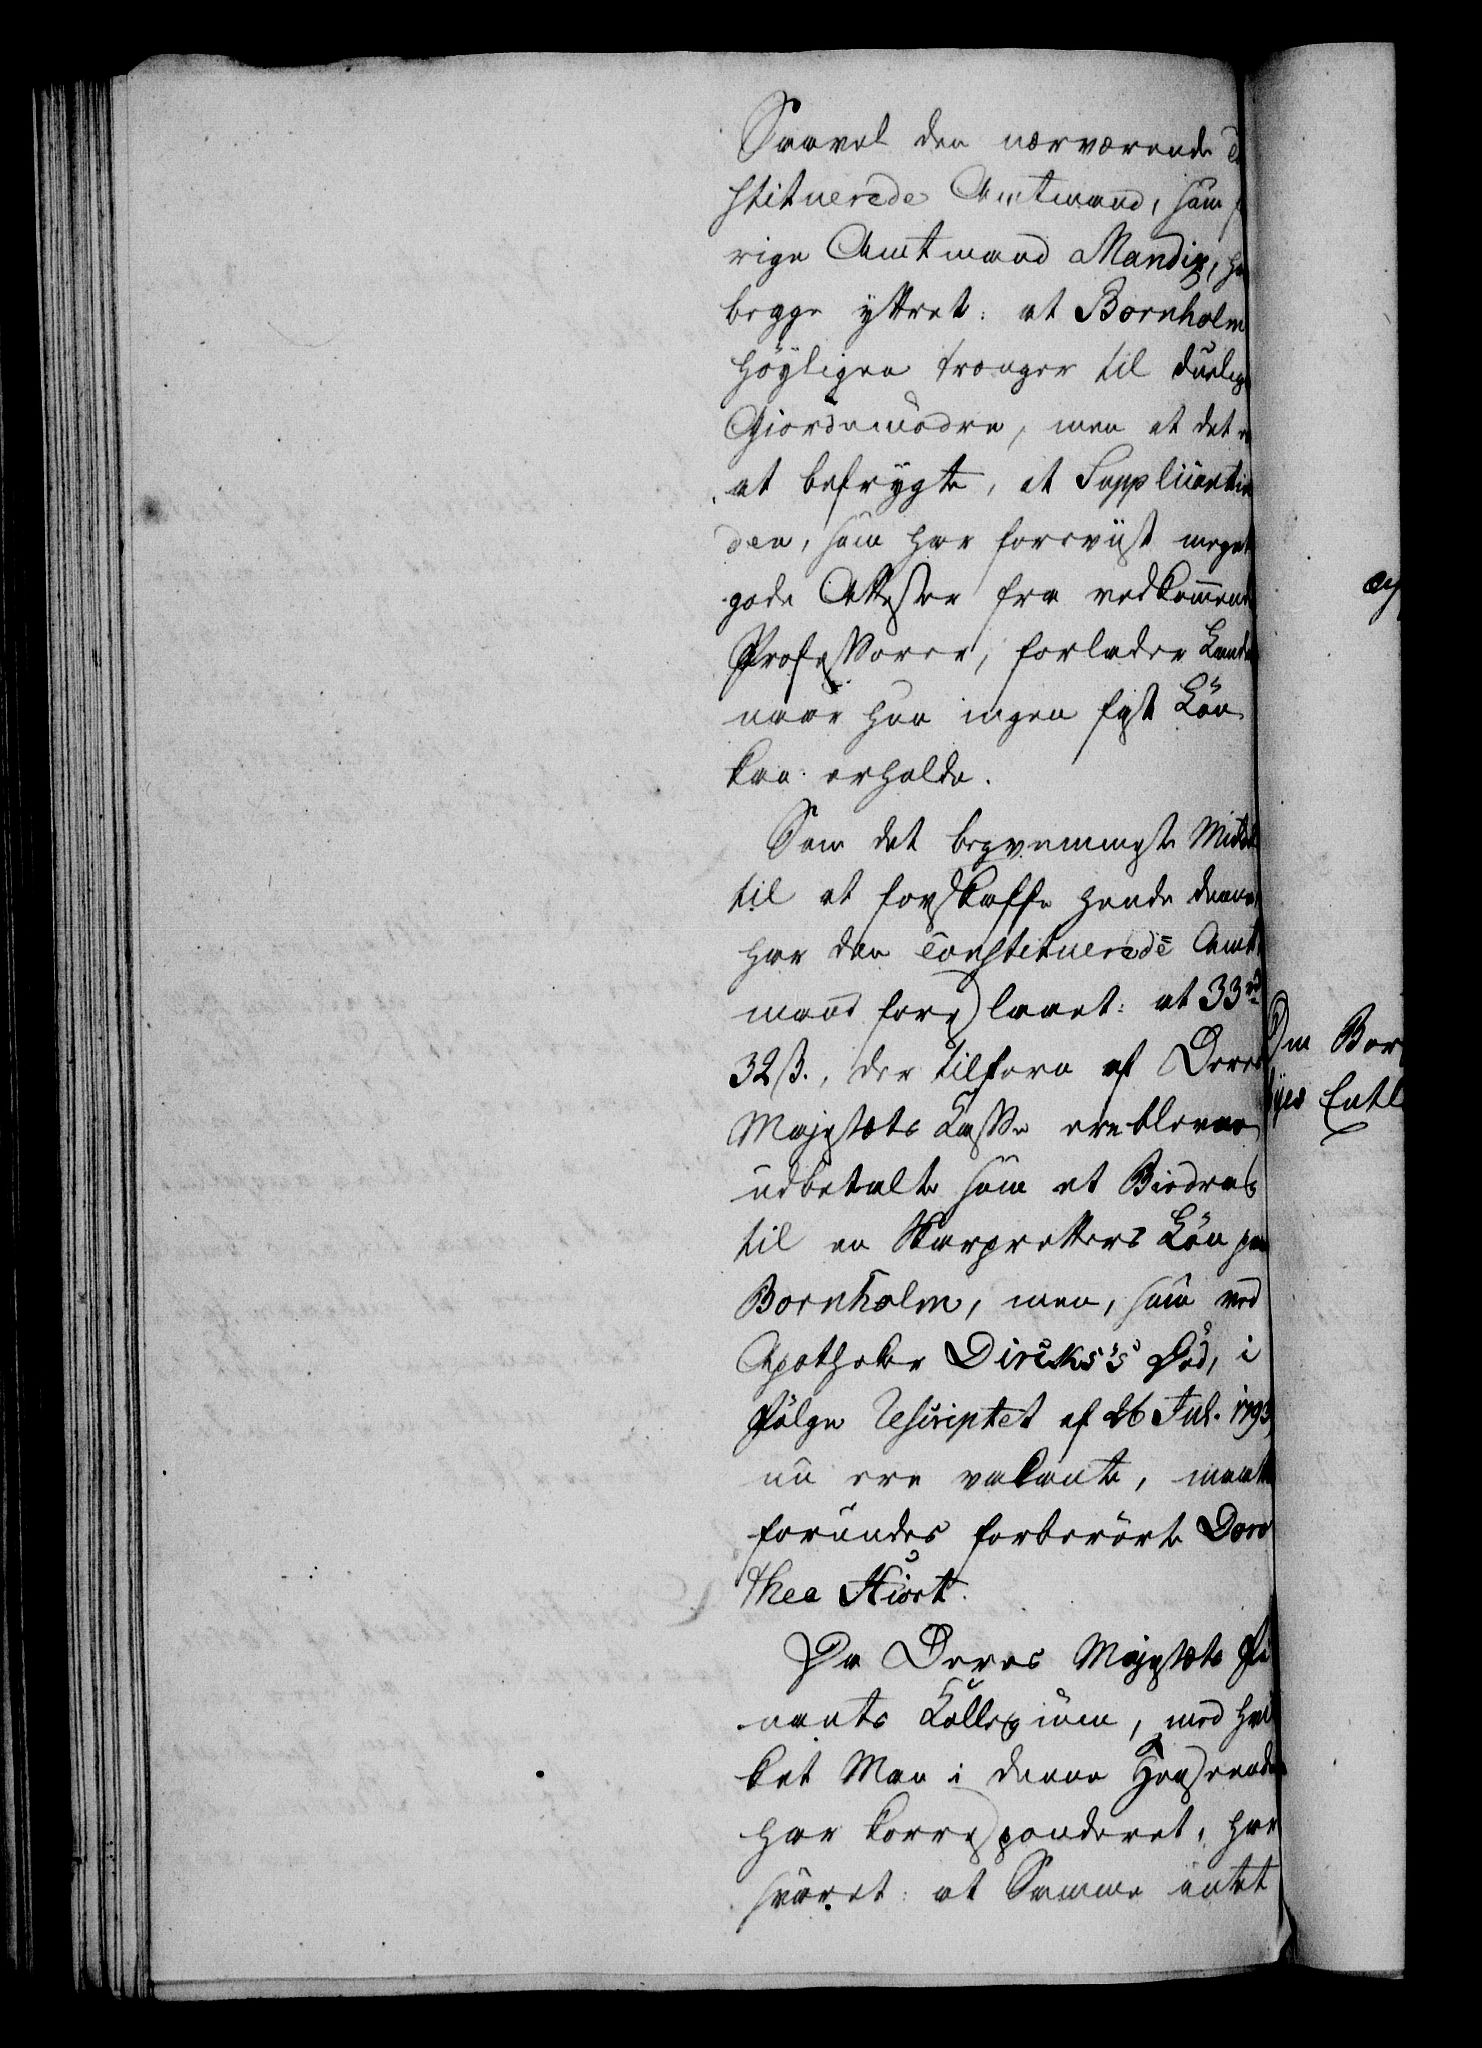 Saavel den nærværende
stituerede Amtmand, som
rige Amtmand Mandix,
begge yttret: at Bornholm
höyligen trænger til duelige
Giordemödre, men at det
at befrygte, at Supplicantin
den, som har foreviist meget
gode Attester fra vedkommende
Professorer, forlader Landet
naar hun ingen fast Lön
kan erholde.
Som det beqvemmeste Middel
til at forskaffe hende denne
har den Constituerede Amt
mand foreslaaet: at 33 rd
32 ß., der tilforn af Deres
Majestæts Kasse ere blevne
udbetalte som et Bidrag
til en Skarpretters Lön paa
Bornholm, men, som ved
Apotheker Dircks's Död, i
Fölge Rescriptet af 26 Jul. 1793
nu ere vakante, maatte
forundes forberörte Doro
thea Hiort.
Da Deres Majestæts Fi
nants Collegium, med hvil
ket Man i denne Henseende
har korresponderet, har
svaret: at Samme intet
Om Bor